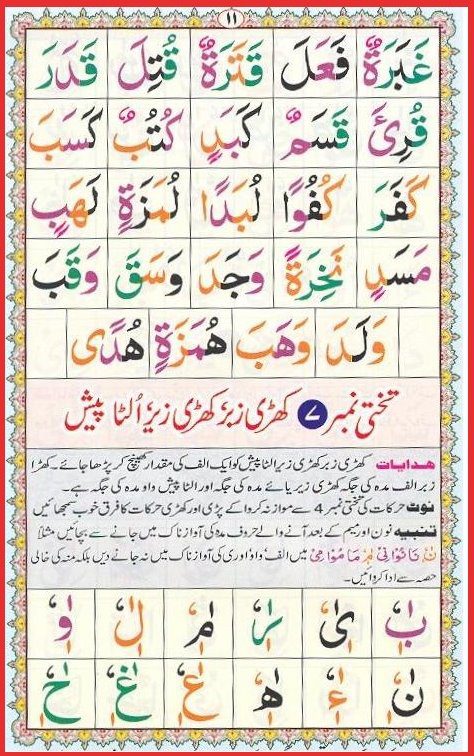 ۱۱
غَبَرَةٌ فَعَلَ قَتَرَةٌ قُتِلَ قَدَرَ
قُرِئَ قَسَمٌ كَبَدٍ كُتُبٌ كَسَبَ
كَفَرَ كُفُوًا لُبَدًا لُمَزَةٍ لَهَبٍ
مَسَدٍ نَخِرَةً وَجَدَ وَسَقَ وَقَبَ
وَلَدَ وَهَبَ هُمَزَةٍ هُدًى
تختی نمبر ۷ کھڑی زبر کھڑی زیر اُلٹا پیش
ھدایات کھڑی زبر کھڑی زیر الٹا پیش کو ایک الف کی مقدار کھینچ کر پڑھا جائے۔ کھڑا
زبر الف مدہ کی جگہ کھڑی زیر یائے مدہ کی جگہ اور الٹا پیش واو مدہ کی جگہ ہے۔
نوٹ حرکات کی تختی نمبر 4 سے موازنہ کروا کے پڑی اور کھڑی حرکات کا فرق خوب سمجھائیں
تنبیہ نون اور میم کے بعد آنے والے حروف مدہ کی آواز ناک میں جانے سے بچائیں مثلاً
میں الف واو اور ی کی آواز ناک میں نہ جانے دیں بلکہ منہ کی خالی
حصہ سے ادا کروائیں۔
بٰ یٰ رٰ مٰ لٰ وٰ
نٰ ءٰ هٰ عٰ غٰ حٰ